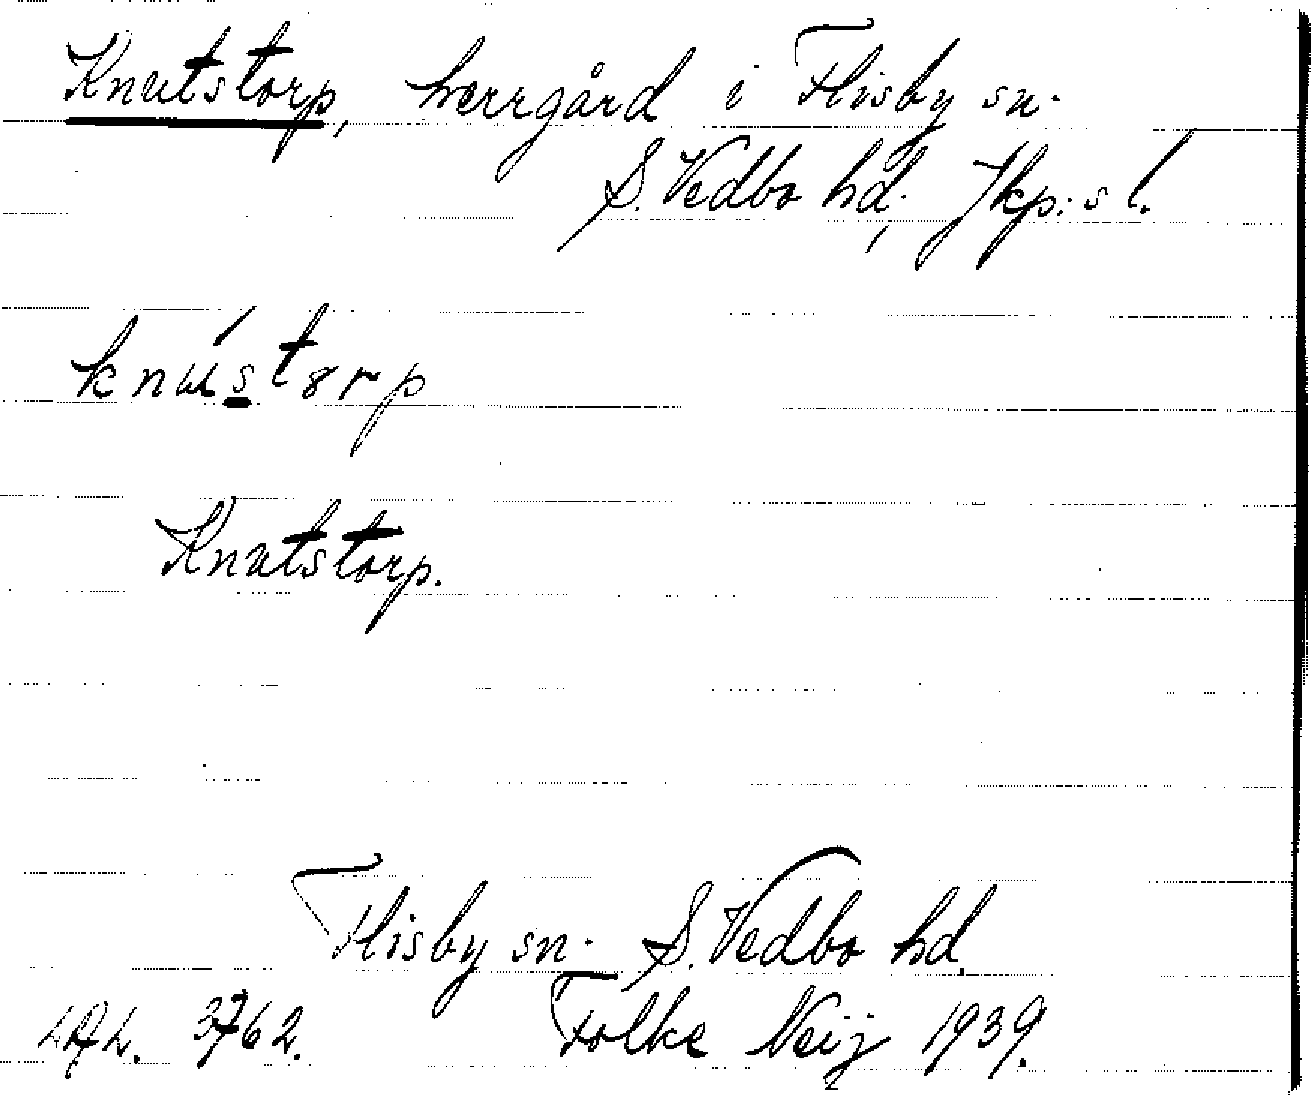 Knutstorp, herrgård i Flisby sn.
S. Vedbo hd, Jkp:s l.
knústorp
Knutstorp.
Flisby sn. S. Vedbo hd.
3762. Folke Neij 1939.